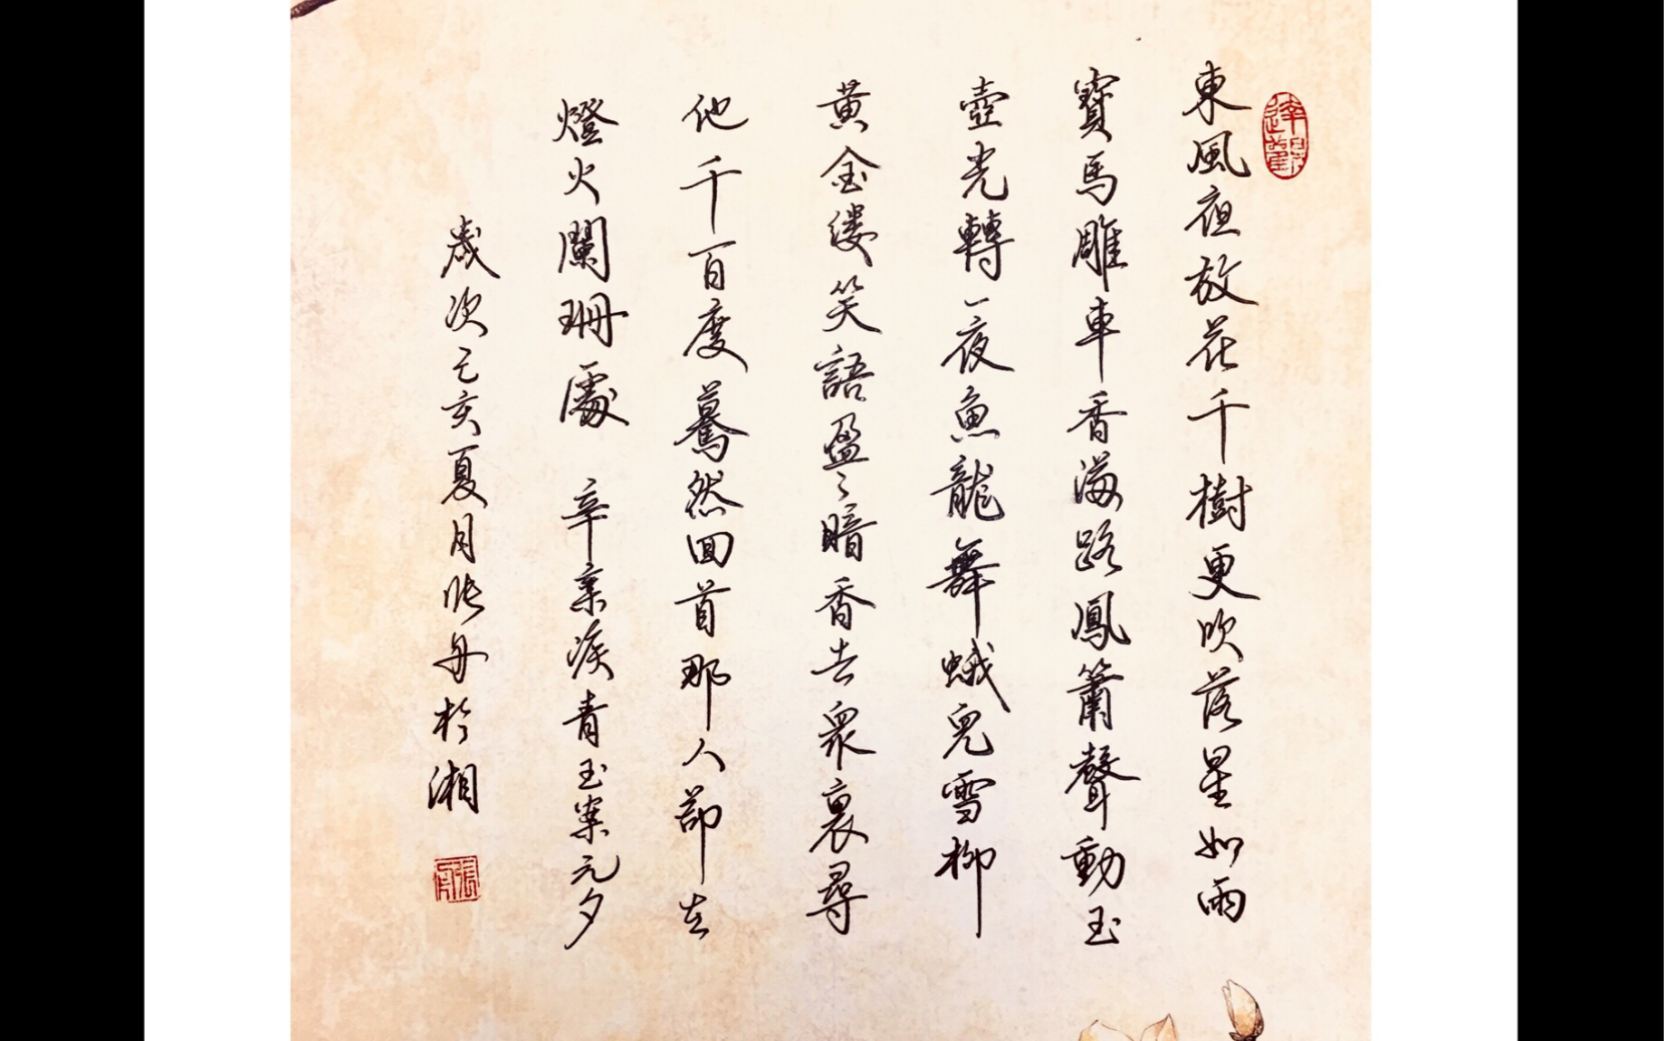 達觀
東風夜放花千樹更吹落星如雨
寶馬雕車香滿路鳳簫聲動玉
壺光轉一夜魚龍舞蛾兒雪柳
黃金縷笑語盈〻暗香去眾裏尋
他千百度驀然回首那人卻在
燈火闌珊處 辛棄疾青玉案元夕
歲次乙亥夏月張丹於湘
張丹